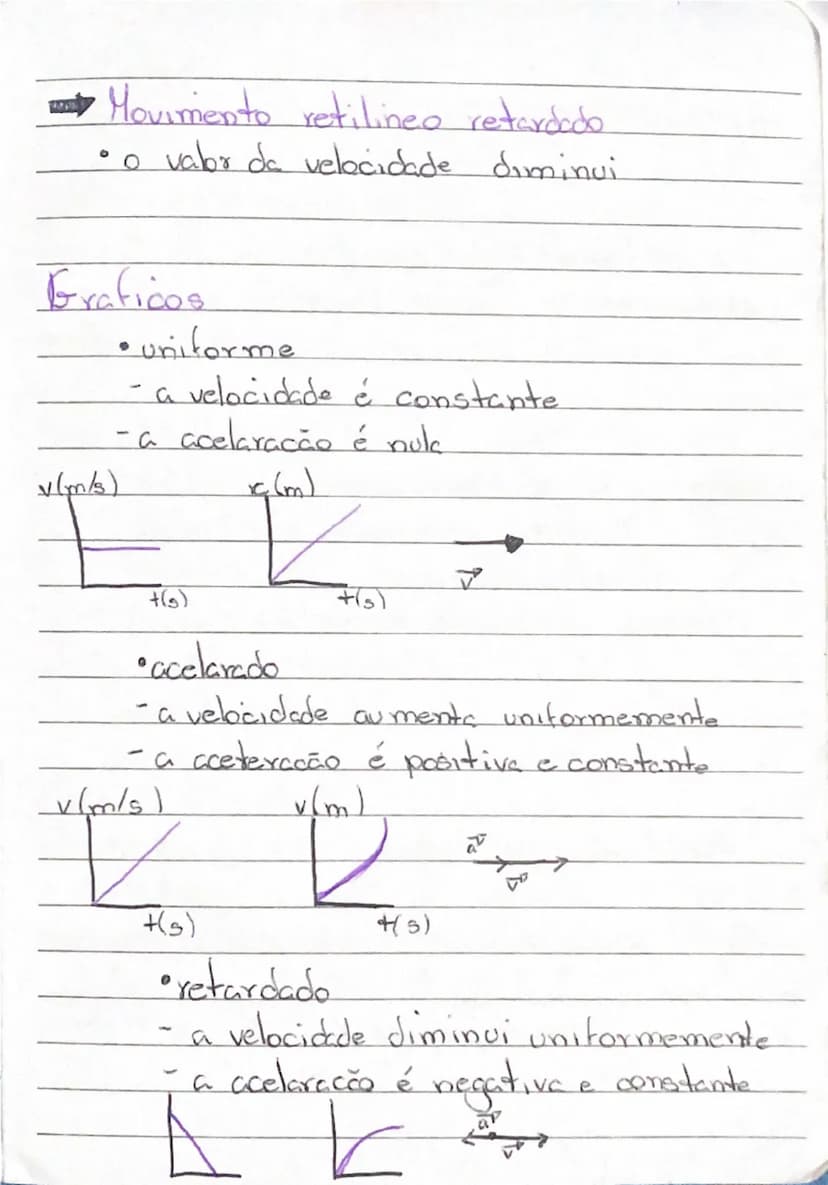 ➡ Movimento retilineo retardado
• o valor da velocidade diminui
Graficos
• uniforme
- a velocidade é constante
- a acelaracão é nula
v(m/s) x(m)
t(s) t(s) v
• acelarado
- a velocidade aumenta uniformemente
- a aceteracão é positiva e constante
v(m/s) v(m)
a
v
t(s) t(s)
• retardado
- a velocidade diminui uniformemente
- a acelaracão é negativa e constante
a
v